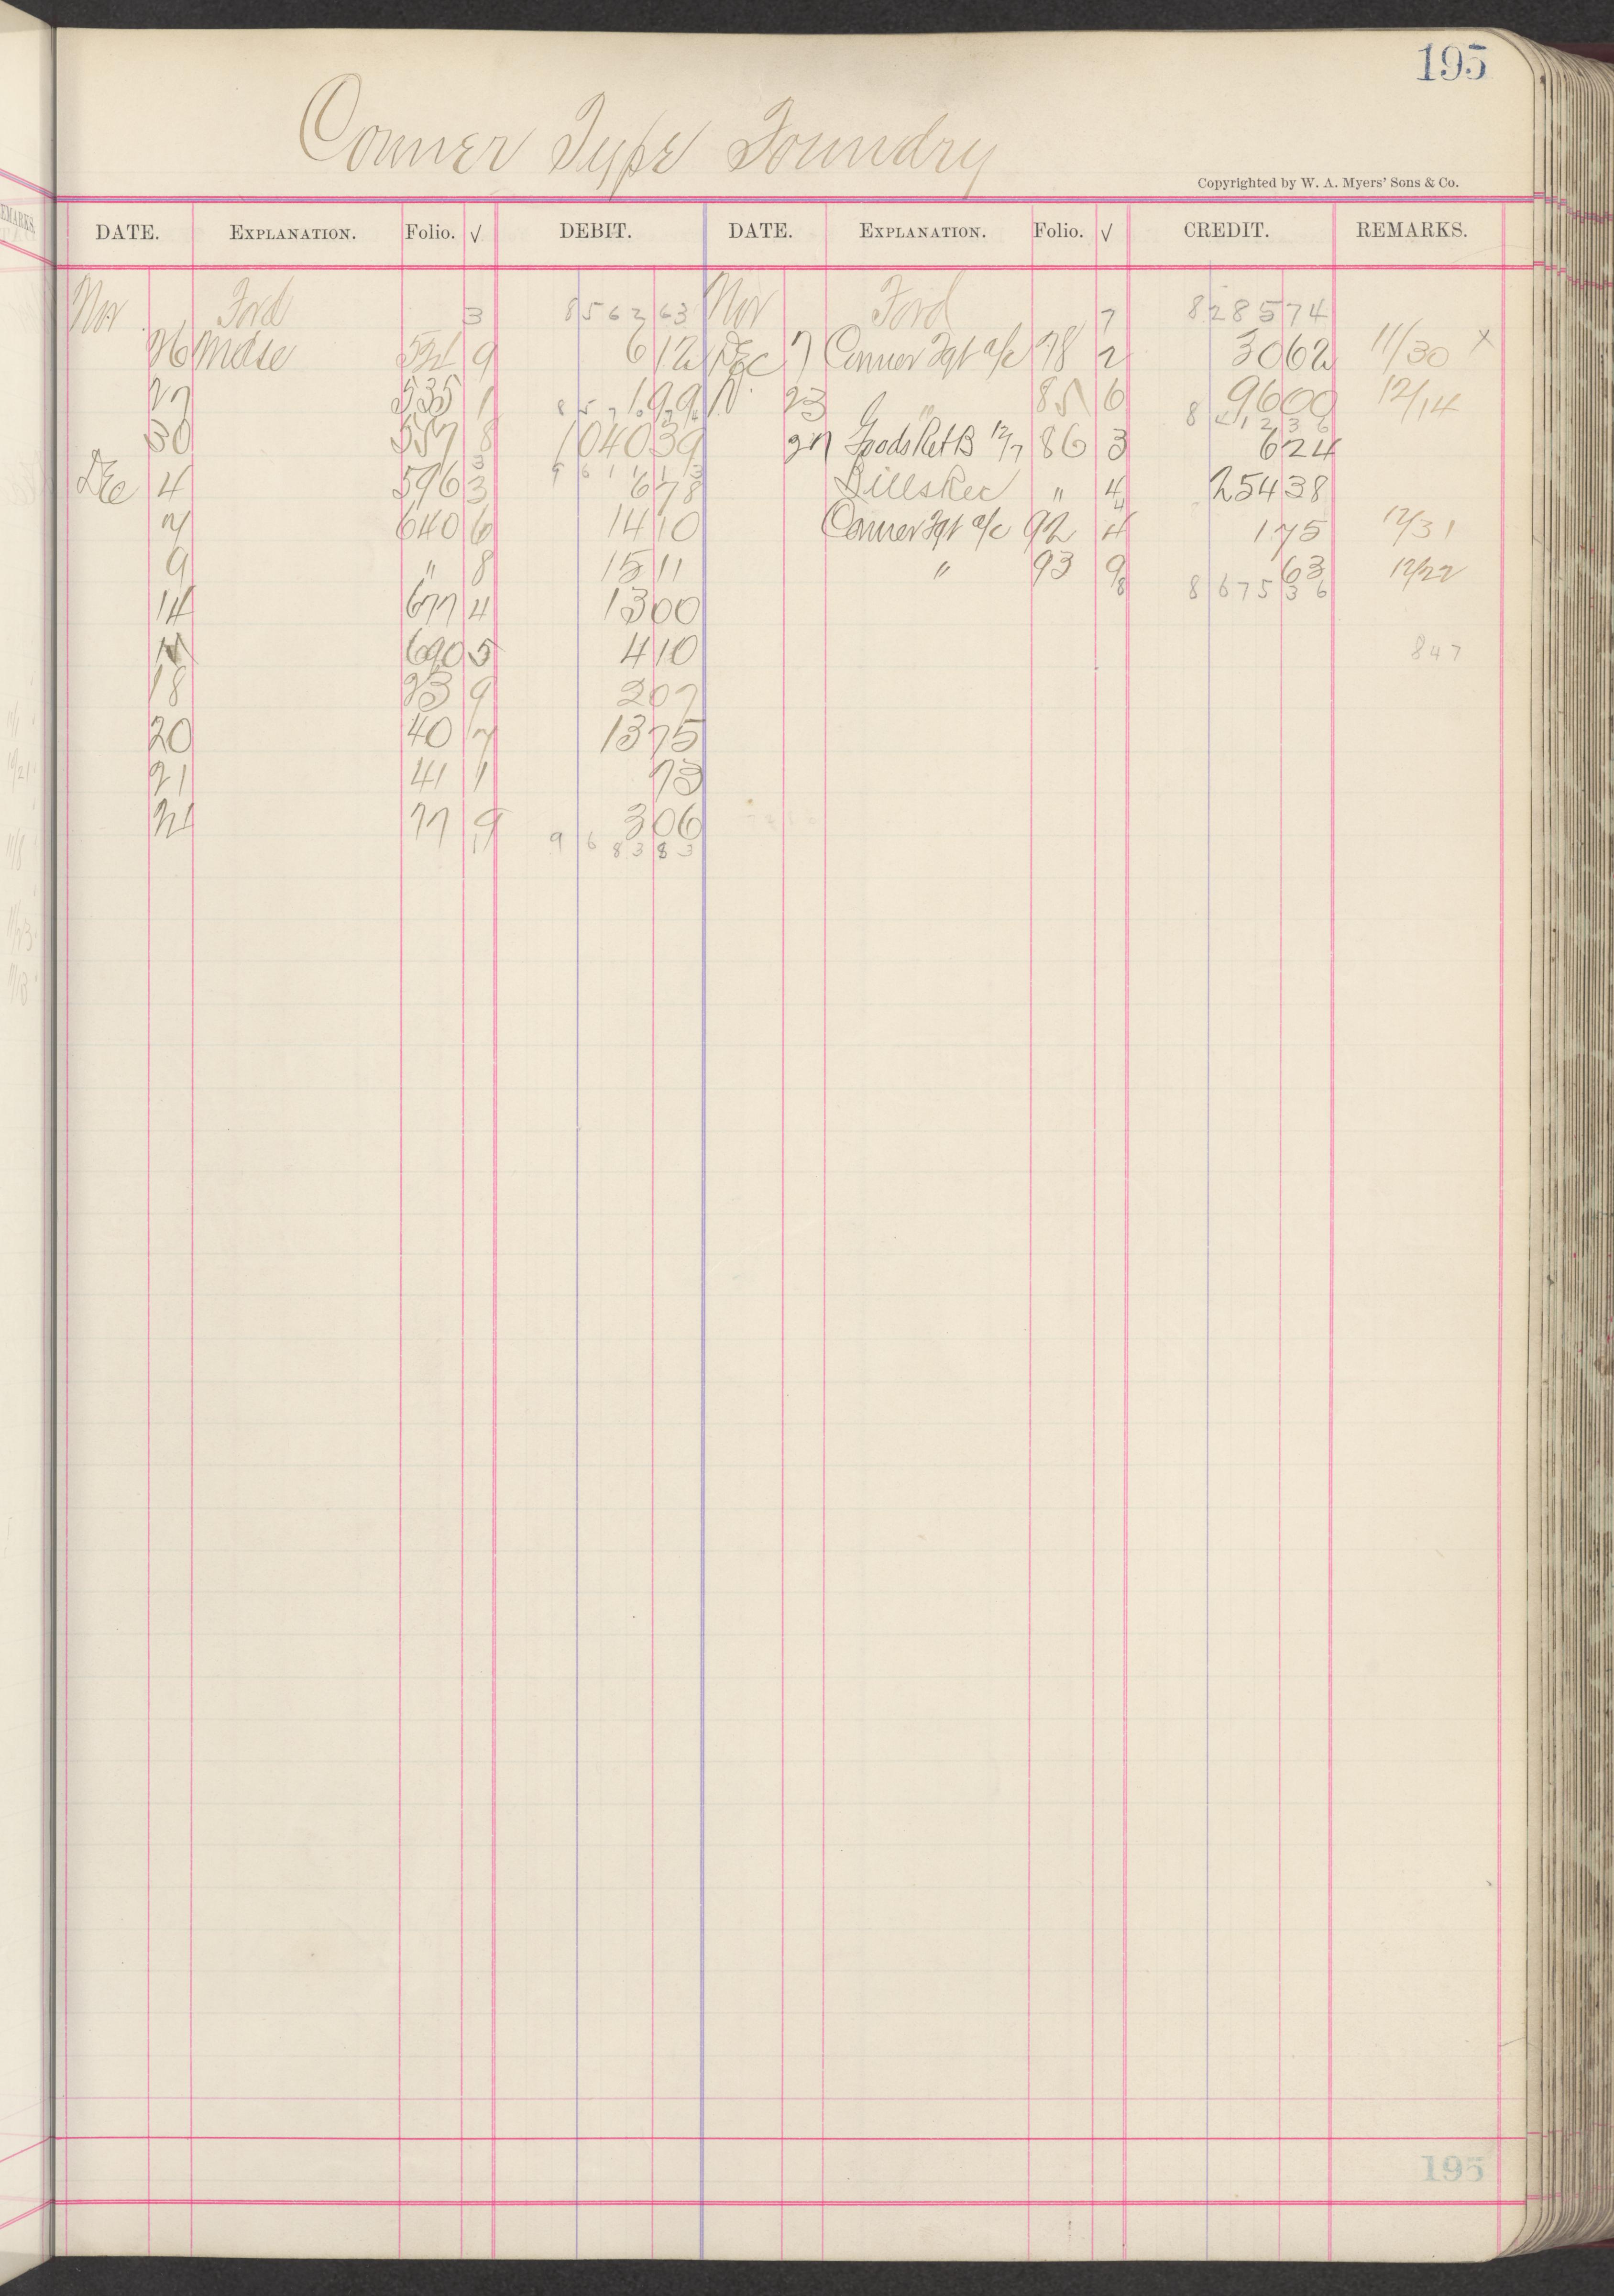 195
Conner Type Foundry
Copyrighted by W. A. Myers' Sons & Co.
DATE. EXPLANATION. Folio. √ DEBIT. DATE. EXPLANATION. Folio. √ CREDIT. REMARKS.
Nov Ford 3 8562 63 Nov Ford 7 8285 74
26 Mdse 521 9 6 12 Dec 7 Conner Agt a/c 78 2 30 62 11/30 x
27 535 1 1 99 23 " 85 6 96 00 12/14
8412 36
30 557 8 1040 39 27 Goods Ret B 12/7 86 3 6 24
9611 13
Dec 4 596 3 6 78 Bills Rec " 4 254 38
7 640 6 14 10 Conner Agt a/c 92 4 1 75 12/31
9 " 8 15 11 " 93 9 63 12/22
8 8675 36
14 677 4 13 00
690 5 4 10 847
18 23 9 2 07
20 40 7 13 75
21 41 1 73
77 9 3 06
9683 83
195